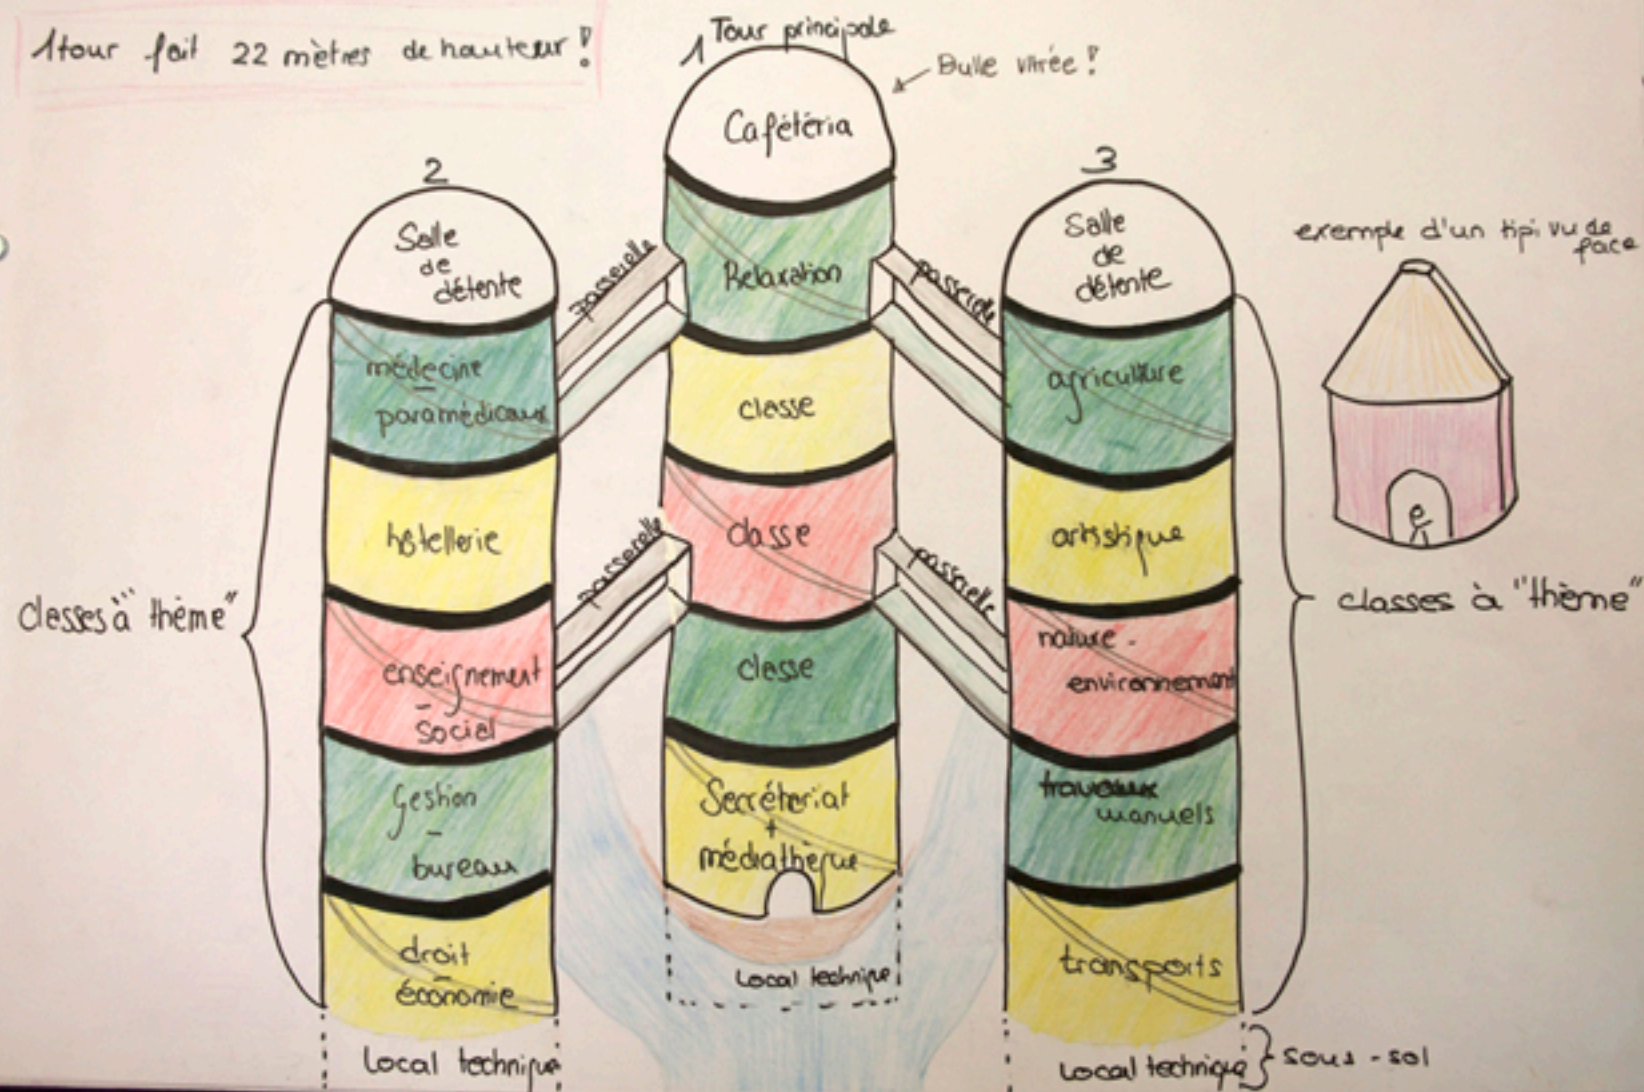 1 tour fait 22 mètres de hauteur !
1 Tour principale
Bulle vitrée !
Cafétéria
Relaxation
classe
classe
classe
Secrétariat
+
médiathèque
Local technique
2
Salle
de
détente
médecine
-
paramédicaux
hôtellerie
enseignement
-
social
Gestion
-
bureau
droit
-
économie
Local technique
classes à "thème"
passerelle
passerelle
passerelle
passerelle
3
Salle
de
détente
agriculture
artistique
nature -
environnement
travaux
manuels
transports
Local technique
sous-sol
classes à "thème"
exemple d'un tipi vu de
face